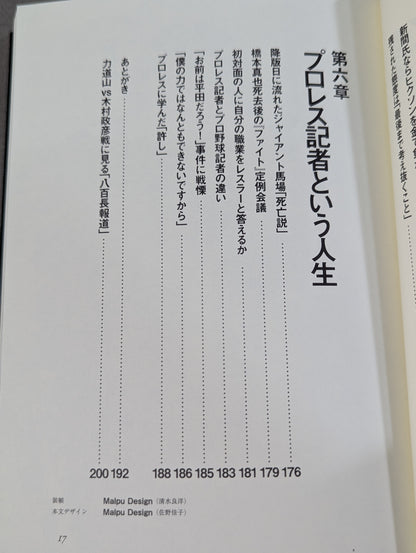 残された態度は「最後まで考え抜くこと」
第六章
プロレス記者という人生
降版日に流れたジャイアント馬場「死亡説」 176
橋本真也死去後の『ファイト』定例会議 179
初対面の人に自分の職業をレスラーと答えるか 181
プロレス記者とプロ野球記者の違い 183
「お前は平田だろう!」事件に戦慄 185
「僕の力ではなんともできないですから」 186
プロレスに学んだ「許し」 188
あとがき 192
力道山vs木村政彦戦に見る「八百長報道」 200
装幀 Malpu Design(清水良洋)
本文デザイン Malpu Design(佐野佳子)
17